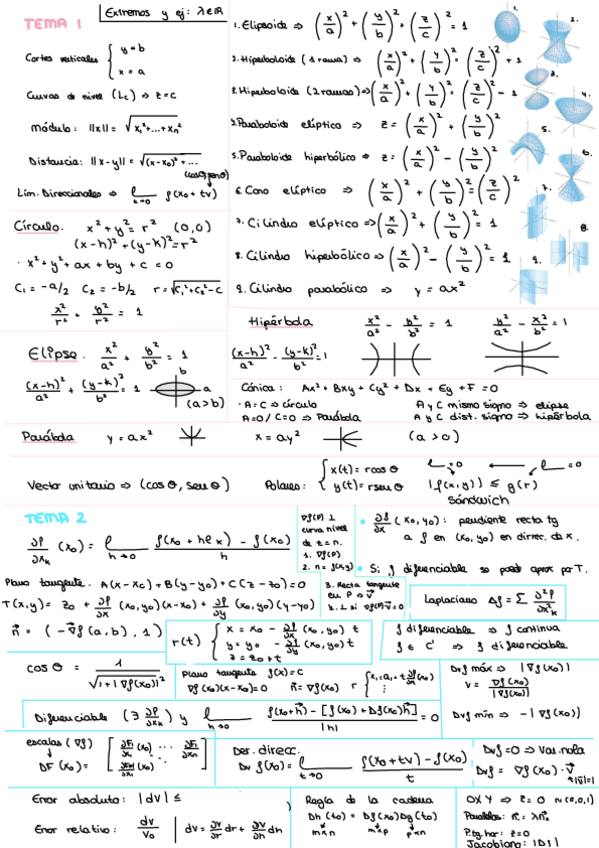 TEMA 1
Extremos y ej: λ∈ℝ
Cortes verticales { y=b
x=a
Curvas de nivel (Lc) ⇒ z=c
módulo: ||x|| = √(x₁²+...+xn²)
Distancia: ||x-y|| = √((x-x₀)²+...
Lím. Direccionales ⇒ l t→0 f(x₀+tv)
1. Elipsoide ⇒ (x/a)² + (y/b)² + (z/c)² = 1
2. Hiperboloide (1 rama) ⇒ (x/a)² + (y/b)² = (z/c)² + 1
3. Hiperboloide (2 ramas) ⇒ (x/a)² + (y/b)² = (z/c)² - 1
Paraboloide elíptico ⇒ z = (x/a)² + (y/b)²
5. Paraboloide hiperbólico ⇒ z = (x/a)² - (y/b)²
6. Cono elíptico ⇒ (x/a)² + (y/b)² = (z/c)²
7. Cilindro elíptico ⇒ (x/a)² + (y/b)² = 1
8. Cilindro hiperbólico ⇒ (x/a)² - (y/b)² = 1
9. Cilindro parabólico ⇒ y = ax²
1.
2.
3.
4.
5.
6.
7.
8.
9.
Círculo. x²+y²=r² (0,0)
(x-h)²+(y-k)²=r²
· x²+y²+ax+by+c=0
C₁=-a/2 C₂=-b/2 r=√(C₁²+C₂²-C)
x²/r² + y²/r² = 1
Elipse. x²/a² + y²/b² = 1
(x-h)²/a² + (y-k)²/b² = 1
b
a
(a>b)
Hipérbola x²/a² - y²/b² = 1 y²/a² - x²/b² = 1
(x-h)²/a² - (y-k)²/b² = 1
Cónica: Ax²+Bxy+Cy²+Dx+Ey+F=0
· A=C ⇒ círculo A y C mismo signo ⇒ elipse
A=0/C=0 ⇒ Parábola A y C dist. signo ⇒ hipérbola
Parábola y=ax² x=ay² (a>0)
Vector unitario ⇒ (cosθ, senθ)
Polares: { x(t)=rcosθ
y(t)=rsenθ
|f(x,y)| ≤ g(r)
Sándwich
TEMA 2
∂f/∂xk (x₀) = l h→0 f(x₀+hek) - f(x₀) / h
∇f(P) ⊥
curva nivel
de z=n.
1. ∇f(P)
2. n=f(x,y)
3. Recta tangente
en P ⇒ v⃗
· ∂f/∂x (x₀,y₀): pendiente recta tg
a f en (x₀,y₀) en direcc. de x.
· Si f diferenciable se puede aprox por T.
Plano tangente. A(x-x₀)+B(y-y₀)+C(z-z₀)=0
T(x,y) = z₀ + ∂f/∂x (x₀,y₀)(x-x₀) + ∂f/∂y (x₀,y₀)(y-y₀)
Laplaciano Δf = Σ ∂²f/∂x²k
n⃗ = (-∇f(a,b), 1)
r(t) { x = x₀ - ∂f/∂x (x₀,y₀) t
y = y₀ - ∂f/∂y (x₀,y₀) t
z = z₀+t
f diferenciable ⇒ f continua
f ∈ C¹ ⇒ f diferenciable
cosθ = 1/√(1+|∇f(x₀)|²)
Plano tangente f(x)=C
∇f(x₀)(x-x₀)=0 n⃗=∇f(x₀)
Dvf máx ⇒ |∇f(x₀)|
v = ∇f(x₀)/|∇f(x₀)|
Dvf mín ⇒ -|∇f(x₀)|
Diferenciable (∃ ∂f/∂xk) y l h→0 f(x₀+h⃗) - [f(x₀)+Df(x₀)h⃗] / |h| = 0
escalas (∇f)
DF(x₀) = [∂F₁/∂x₁ (x₀) ... ∂F₁/∂xn
Der. direcc.
Dvf(x₀) = l t→0 f(x₀+tv) - f(x₀) / t
Dvf=0 ⇒ Var. nula
Dvf = ∇f(x₀)·v⃗ |v⃗|=1
Error absoluto: |dV| ≤
Error relativo: dV/V₀
dV = ∂V/∂r dr + ∂V/∂h dh
Regla de la cadena
Dh(t₀) = Df(x₀)Dg(t₀)
m×n m×p p×n
OXY ⇒ z=0 n(0,0,1)
P.tg.hor: z=0
Jacobiano: |Df|